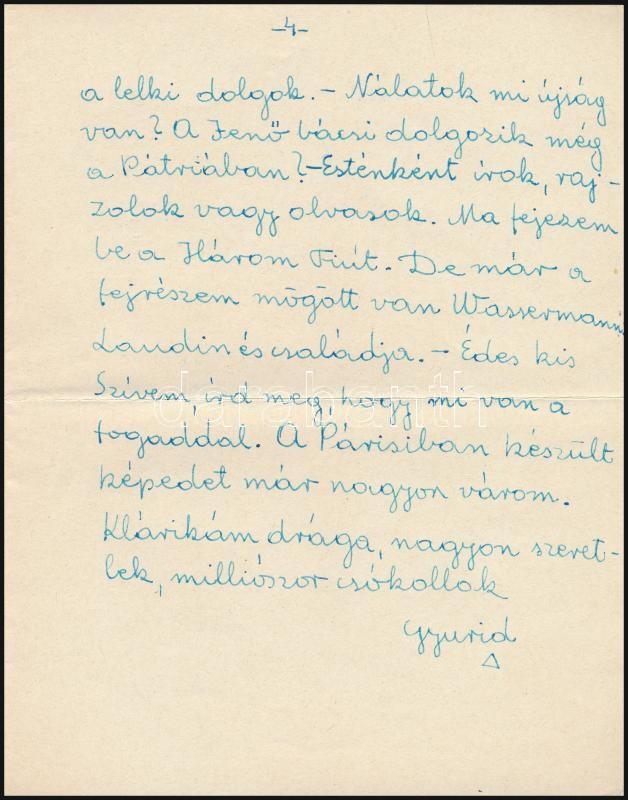 -4-
a lelki dolgok. - Nálatok mi újság
van? A Jenő bácsi dolgozik még
a Pátriában? - Esténként írok, raj-
zolok vagy olvasok. Ma fejezem
be a Három Fiút. De már a
fejrészem mögött van Wassermann:
Laudin és családja. - Édes kis
Szívem, írd meg, hogy mi van a
fogaddal. A Párisiban készült
képedet már nagyon várom.
Klárikám drága, nagyon szeret-
lek, milliószor csókollak
Gyurid
darabanth